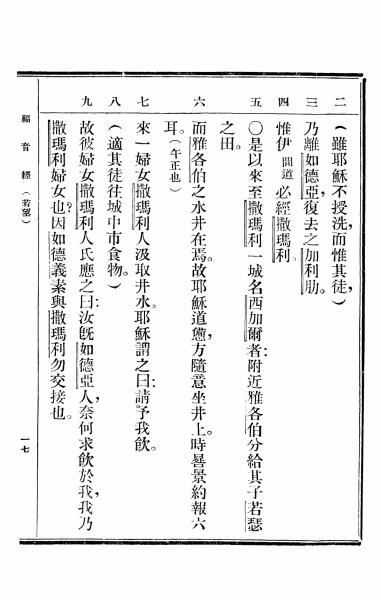 二 (雖耶穌不授洗而惟其徒、)
三 乃離如德亞、復去之加利肋。
四 惟伊間道必經撒瑪利。
五 〇是以來至撒瑪利一城名西加爾者:附近雅各伯分給其子若瑟
之田。
六 而雅各伯之水井在焉。故耶穌道憊、方隨意坐井上。時晷景約報六
耳。(午正也)
七 來一婦女撒瑪利人汲取井水。耶穌謂之曰:請予我飲。
八 (適其徒往城中市食物。)
九 故彼婦女撒瑪利人氏應之曰:汝旣如德亞人、奈何求飲於我、我乃
撒瑪利婦女也?因如德義素與撒瑪利勿交接也。
福音經 (若望)
一七